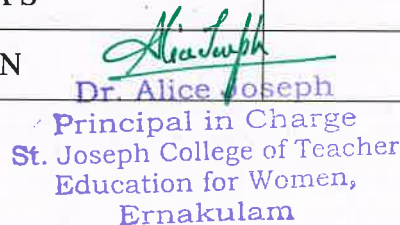 N
Alice Joseph
Dr. Alice Joseph
Principal in Charge
St. Joseph College of Teacher
Education for Women,
Ernakulam